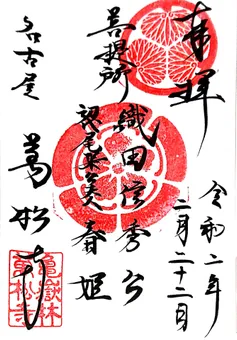 奉拝
令和二年
二月二十二日
織田信秀公
菩提所
御尊美春姫
名古屋
萬松寺
亀嶽林
萬松寺